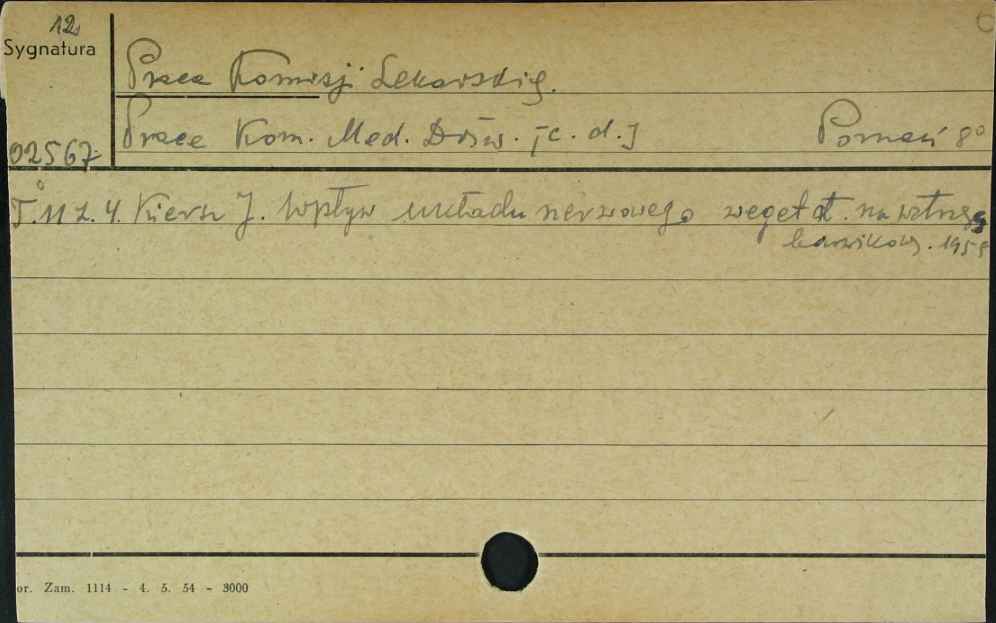 12.
6
Sygnatura
Prace Komisji Lekarskiej.
Prace Kom. Med. Dośw. [c. d.] Poznań 8°
02567
T. 11 z. 4. Kiersz J. Wpływ układu nerwowego weget. na
barwikow. 1959
or. Zam. 1114 - 4. 5. 54 - 3000